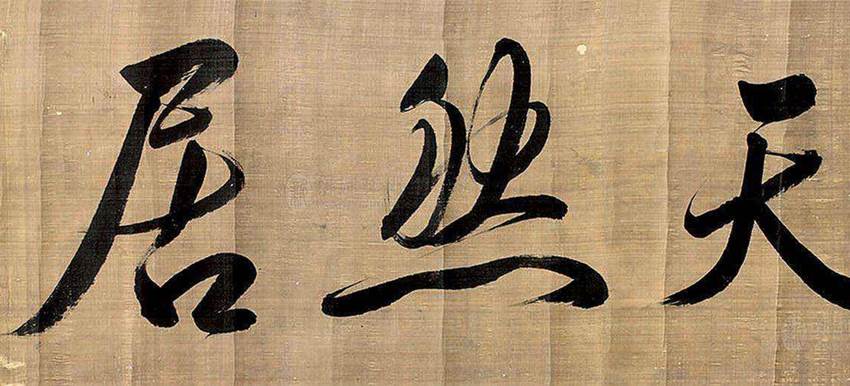 天然居